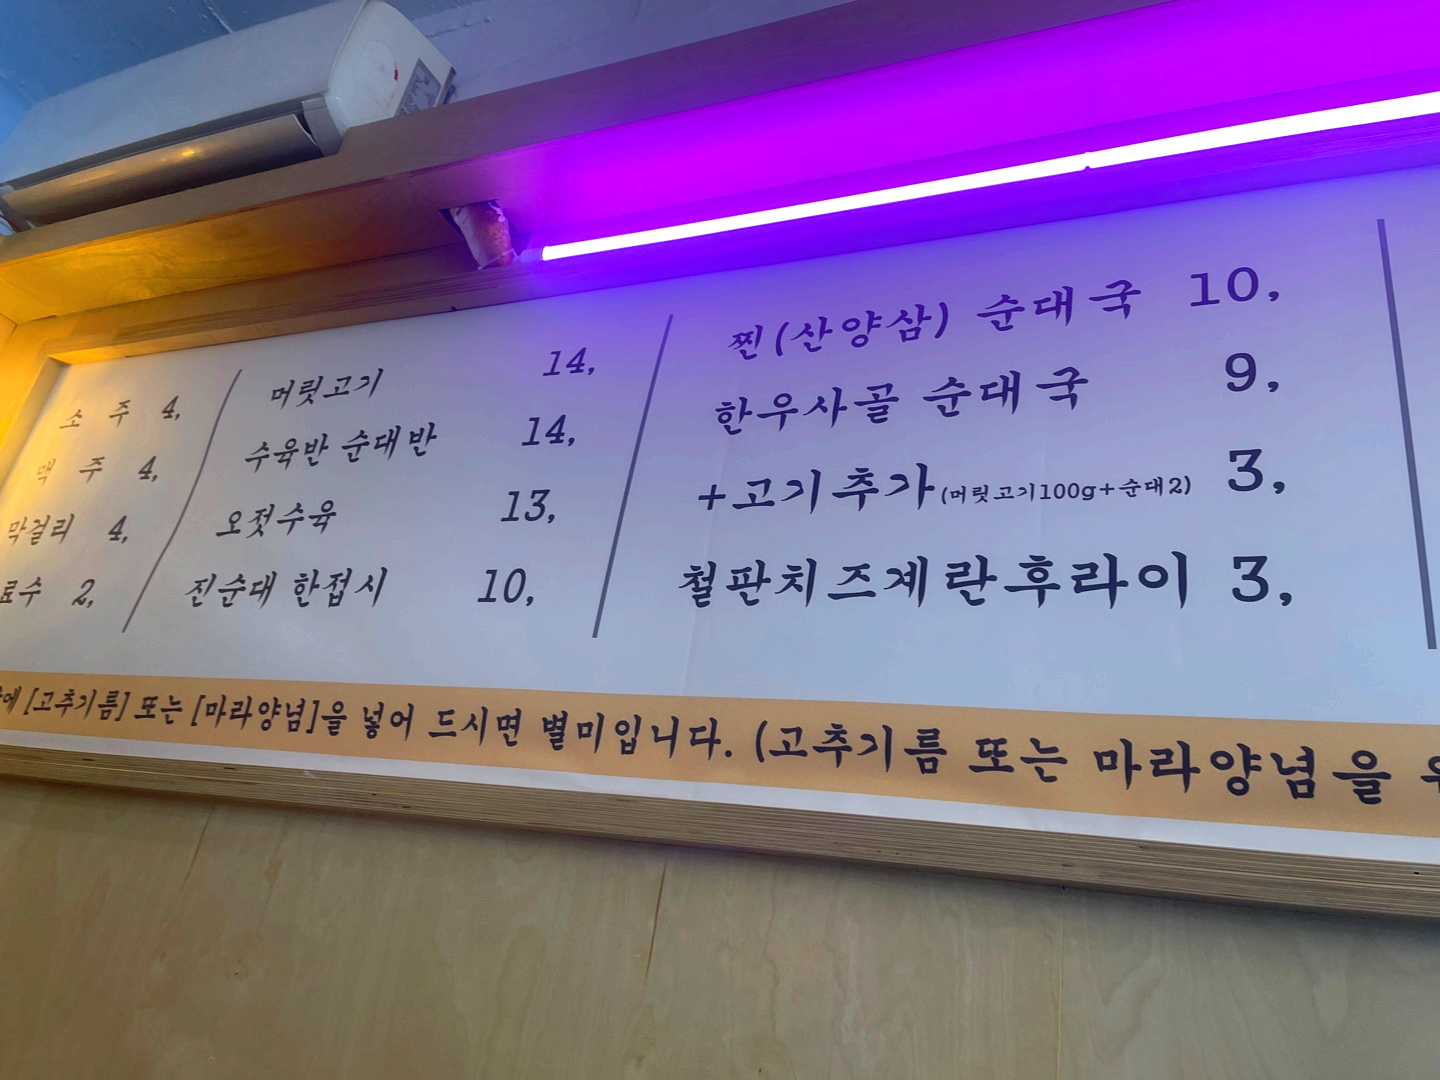 소 주 4,
맥 주 4,
막걸리 4,
료수 2,
머릿고기 14,
수육반 순대반 14,
오젓수육 13,
진순대 한접시 10,
찐(산양삼) 순대국 10,
한우사골 순대국 9,
+고기추가(머릿고기100g+순대2) 3,
철판치즈계란후라이 3,
에 [고추기름] 또는 [마라양념]을 넣어 드시면 별미입니다. (고추기름 또는 마라양념을